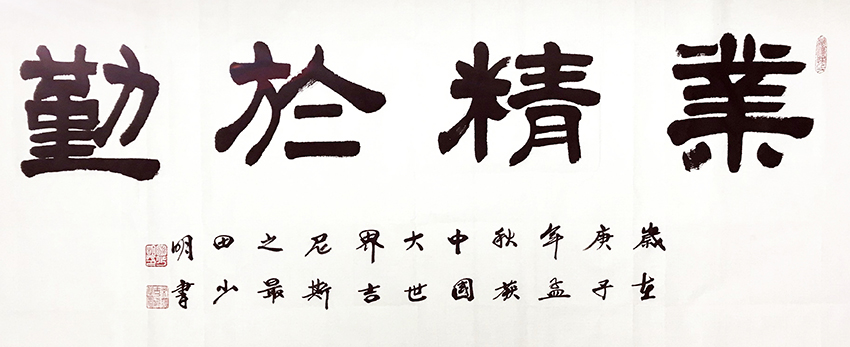 業精於勤
歲在
庚子
年孟
秋获
中國
大世
界吉
尼斯
之最
田少
明書